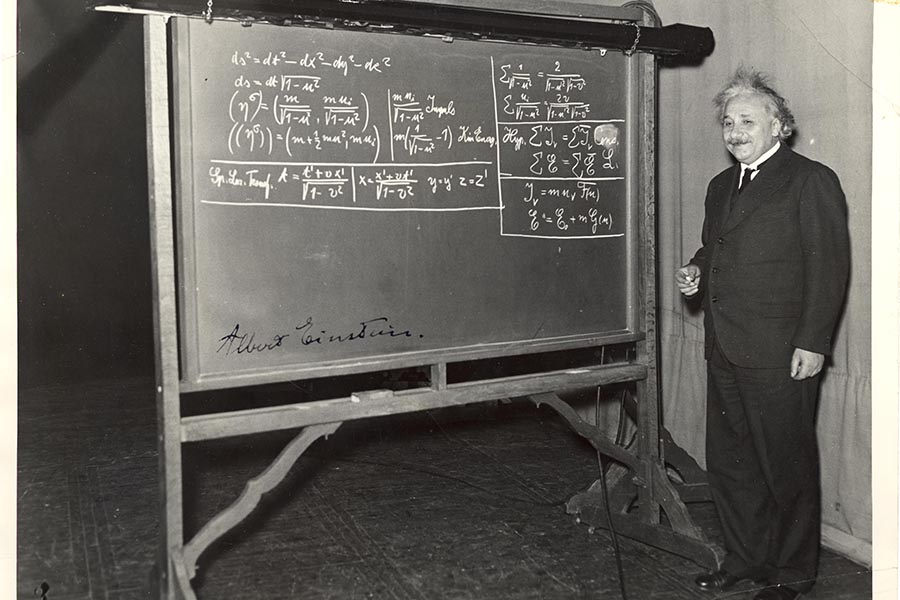 ds² = dt² − dx² − dy² − dz²
ds = dt √(1−u²)
(η^σ) = (m/√(1−u²), m u_i/√(1−u²)) | m u_i/√(1−u²) Impuls
((η^σ)) = (m + ½ m u², m u_i) | m(1/√(1−u²) − 1) Kin. Energ.
Sp. Lor. Transf. t = (t' + v x')/√(1−v²) | x = (x' + v t')/√(1−v²) y = y' z = z'
∑ 1/√(1−u²) = 2/(√(1−u²) √(1−v²))
∑ u_1/√(1−u²) = 2v/(√(1−u²) √(1−v²))
Hyp. ∑ I_ν = ∑ Ī_ν
∑ E = ∑ Ē
I_ν = m u_ν F(u)
E = E₀ + m G(u)
Albert Einstein.